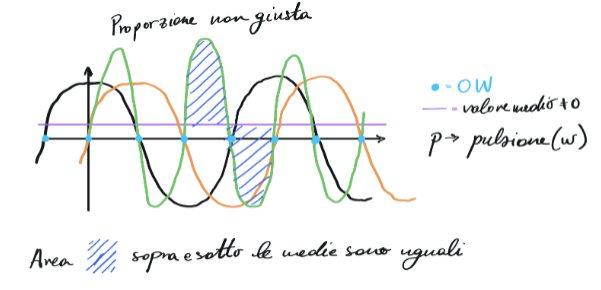 Proporzione non giusta
• - 0W
— - valore medio ≠ 0
p → pulsione (w)
Area sopra e sotto le medie sono uguali